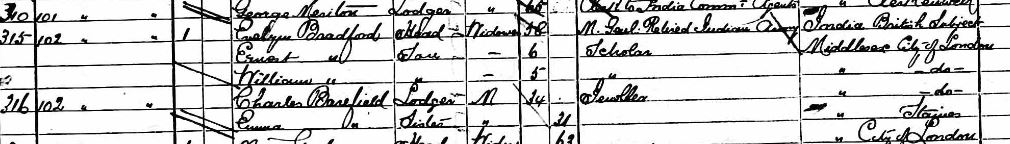 310 101 " " George Meriton Lodger " 65 East & India Comm. Agents "
315 102 " " 1 Evelyn Bradford Head - Widower 38 M. Genl. Retired Indian Army India British Subject
Ernest " Son - 6 Scholar Middlesex City of London
William " " - 5 " " -do-
316 102 " " Charles Barefield Lodger M 34 Jeweller " -do-
Emma " Sister " 31 " Staines
Head Widow 63 " City of London